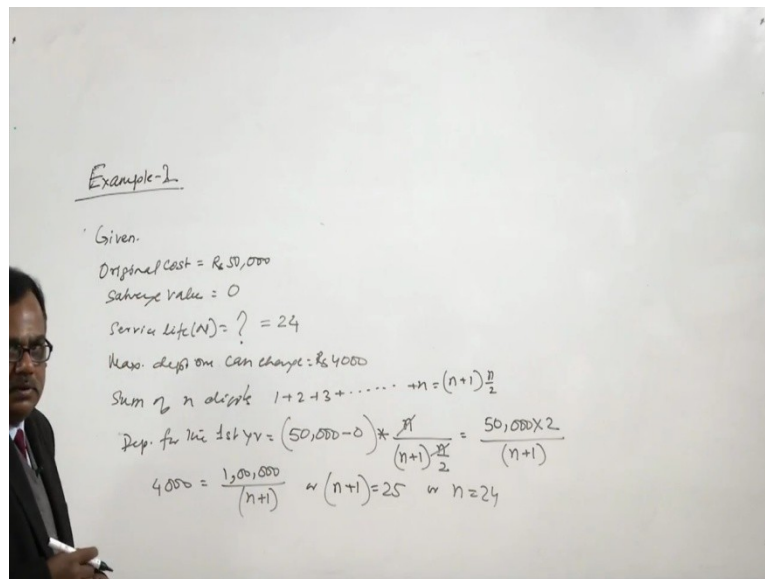 Example-1
Given.
Original Cost = Rs 50,000
Salvage Value = 0
Service life (N) = ? = 24
Max. depr one can charge = Rs 4000
Sum of n digits 1+2+3+......+n = (n+1) n/2
Dep. for the 1st yr = (50,000-0) * n/((n+1) n/2) = 50,000x2/(n+1)
4000 = 1,00,000/(n+1) or (n+1)=25 or n=24